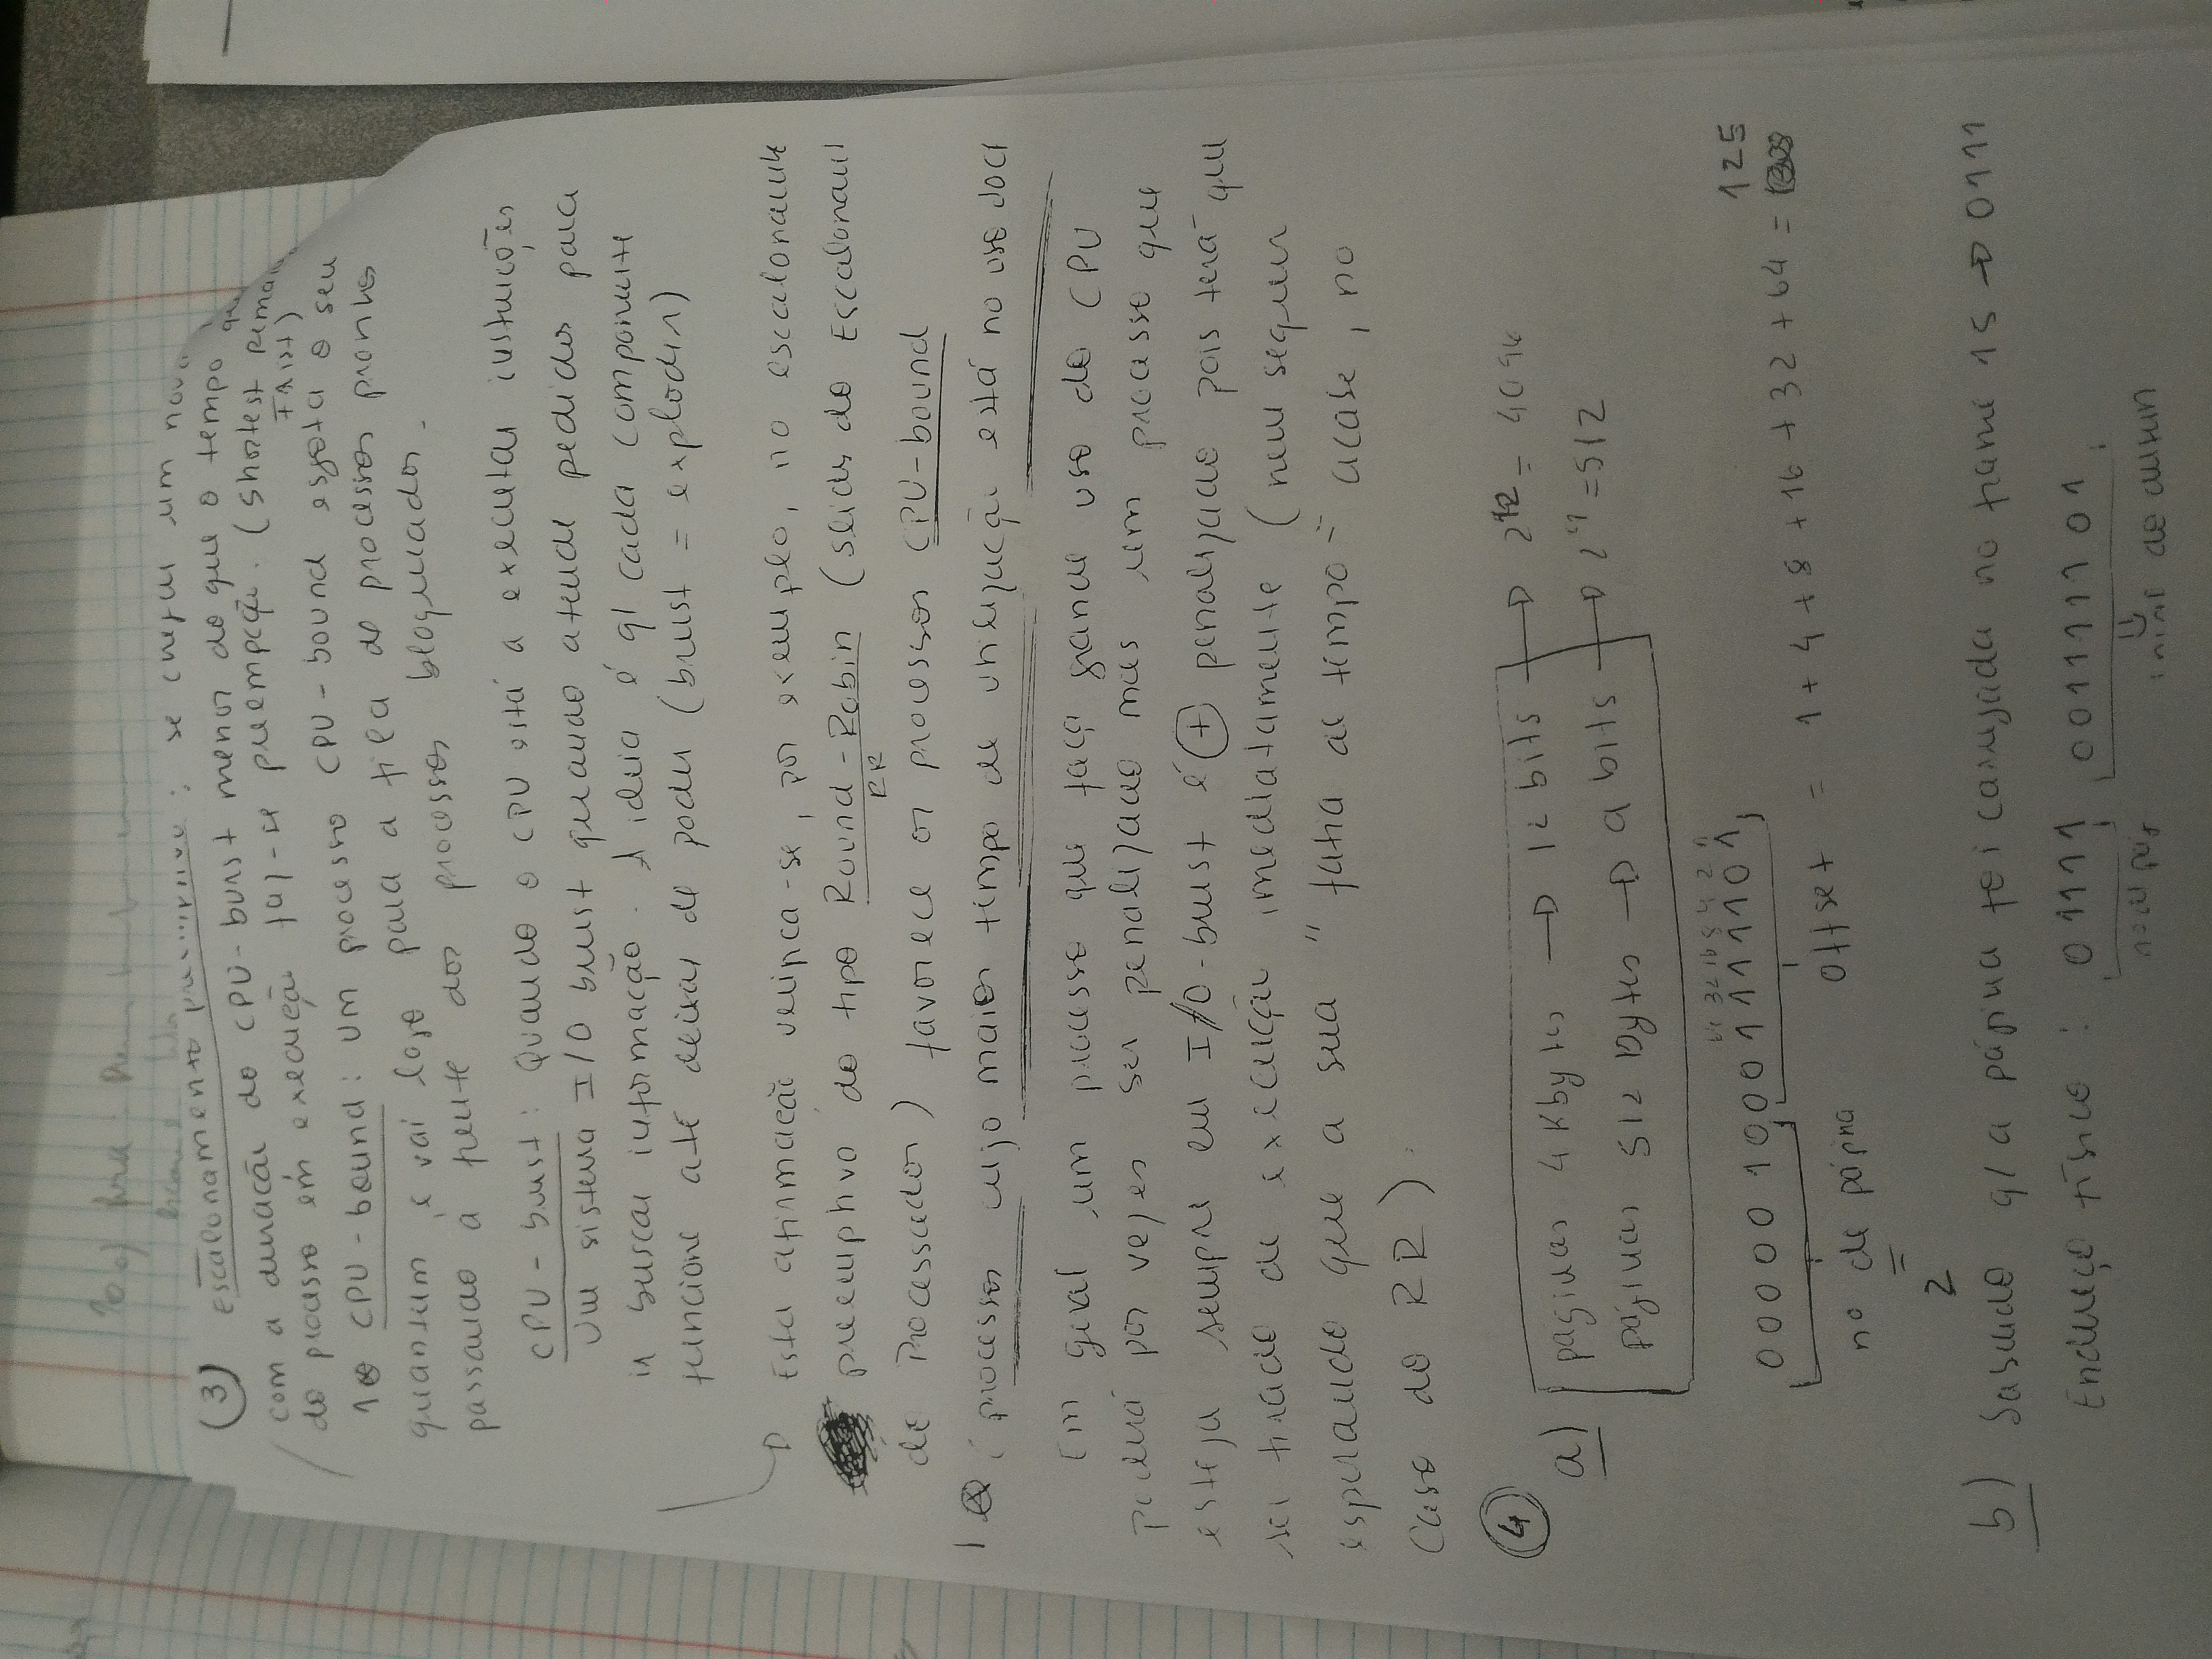 (3) Escalonamento preemptivo : se chegar um novo
com a duração do CPU-burst menor do que o tempo
do processo em execução faz-se preempção. (Shortest
First)
1⊗ CPU-bound : um processo CPU-bound esgota o seu
quantum e vai logo para a fila de processos prontos
passando à frente dos processos bloqueados.
CPU-burst : Quando o CPU está a executar instruições
Um sistema I/O burst quando atende pedidos para
ir buscar informação. A ideia é q/ cada componente
funcione até deixar de poder (burst = explodir)
→ Esta afirmação verifica-se, por exemplo, no
preemptivo do tipo Round-Robin (slids do
RR
de Processador) favorece os processos CPU-bound
1 ⊗ : processos cujo maior tempo de utilização está no uso do
Em geral um processo que faça grande uso do CPU
poderá por vezes ser penalizado mas um processo que
esteja sempre em I/O-burst é ⊕ penalizado pois terá que
ser tirado de execução imediatamente (nem sequer
esperando que a sua "fatia de tempo" acabe, no
caso do RR).
(4)
a) páginas 4 Kbytes → 12 bits → 2^12 = 4096
páginas 512 bytes → 9 bits → 2^9 = 512
64 32 16 8 4 2 1
0000010001111101
125
offset = 1 + 4 + 8 + 16 + 32 + 64 =
nº de página
=
2
b) Sabendo q/ a página foi carregada no frame 15 → 0111
Endereço físico : 01111 001111101